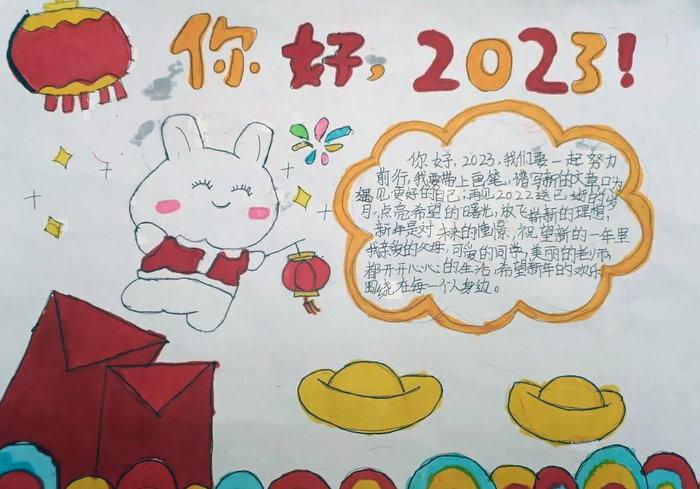 你好，2023！
你好，2023，我们要一起努力
前行，我要带上画笔，谱写新的文章口为
遇见更好的自己；再见2022逝的岁
月，点亮希望的曙光，放飞崭新的理想，
新年是对未来的憧憬，祝望新的一年里
我亲爱的父母，可爱的同学，美丽的老师，
都开开心心的生活，希望新年的欢乐
围绕在每一个人身边。